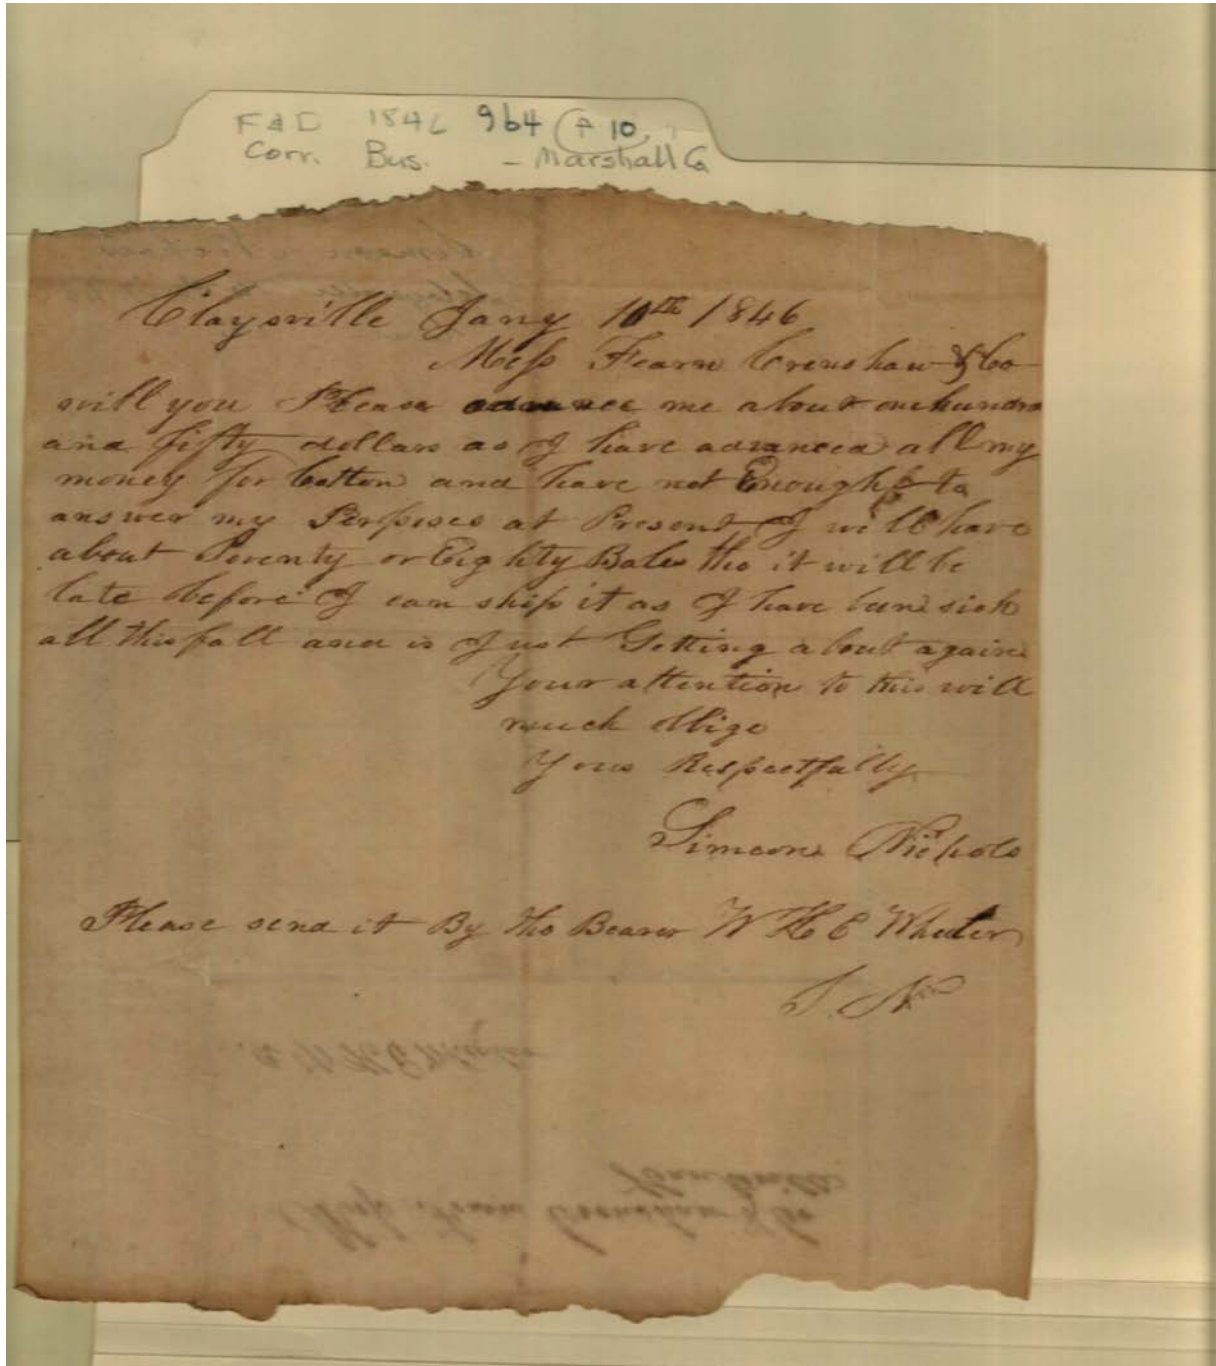 F&D 1846 964 P 10
Corr. Bus. - Marshall Co
Claysville Jany 10th 1846
Mess Fearn Crenshaw & Co
will you Please advance me about one hundred
and fifty dollars as I have advanced all my
money for Cotton and have not Enough to
answer my Perposes at Present I will have
about Seventy or Eighty Bales tho it will be
late before I can ship it as I have been sick
all this fall and is Just Getting about again
Your attention to this will
much oblige
Yous Respectfully
Simeon Nichols
Please send it By the Bearer W H C Wheeler
S. N
W H C Wheeler
Huntsville
Mess Fearn Crenshaw & Co